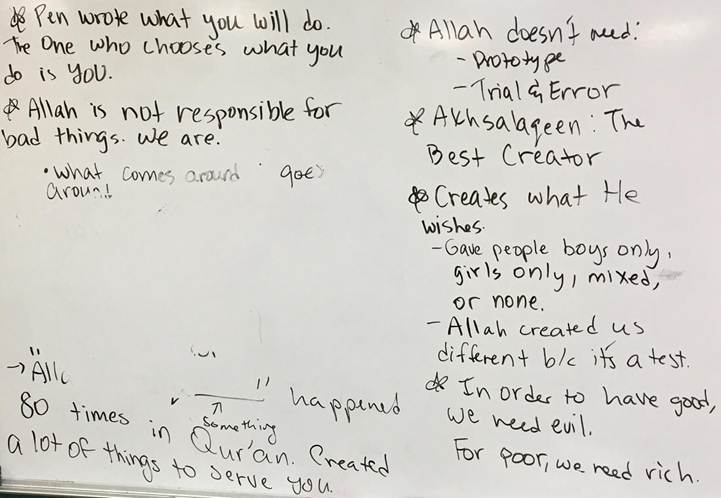 Pen wrote what you will do.
The One who chooses what you
do is YOU.
Allah is not responsible for
bad things. We are.
• What comes around goes
around!
→ "All
" happened
Something
80 times in Qur'an. Created
a lot of things to serve you.
Allah doesn't need:
- Prototype
- Trial & Error
Akhsalaqeen: The
Best Creator
Creates what He
wishes.
- Gave people boys only,
girls only, mixed,
or none.
- Allah created us
different b/c it's a test.
In order to have good,
we need evil.
For poor, we need rich.